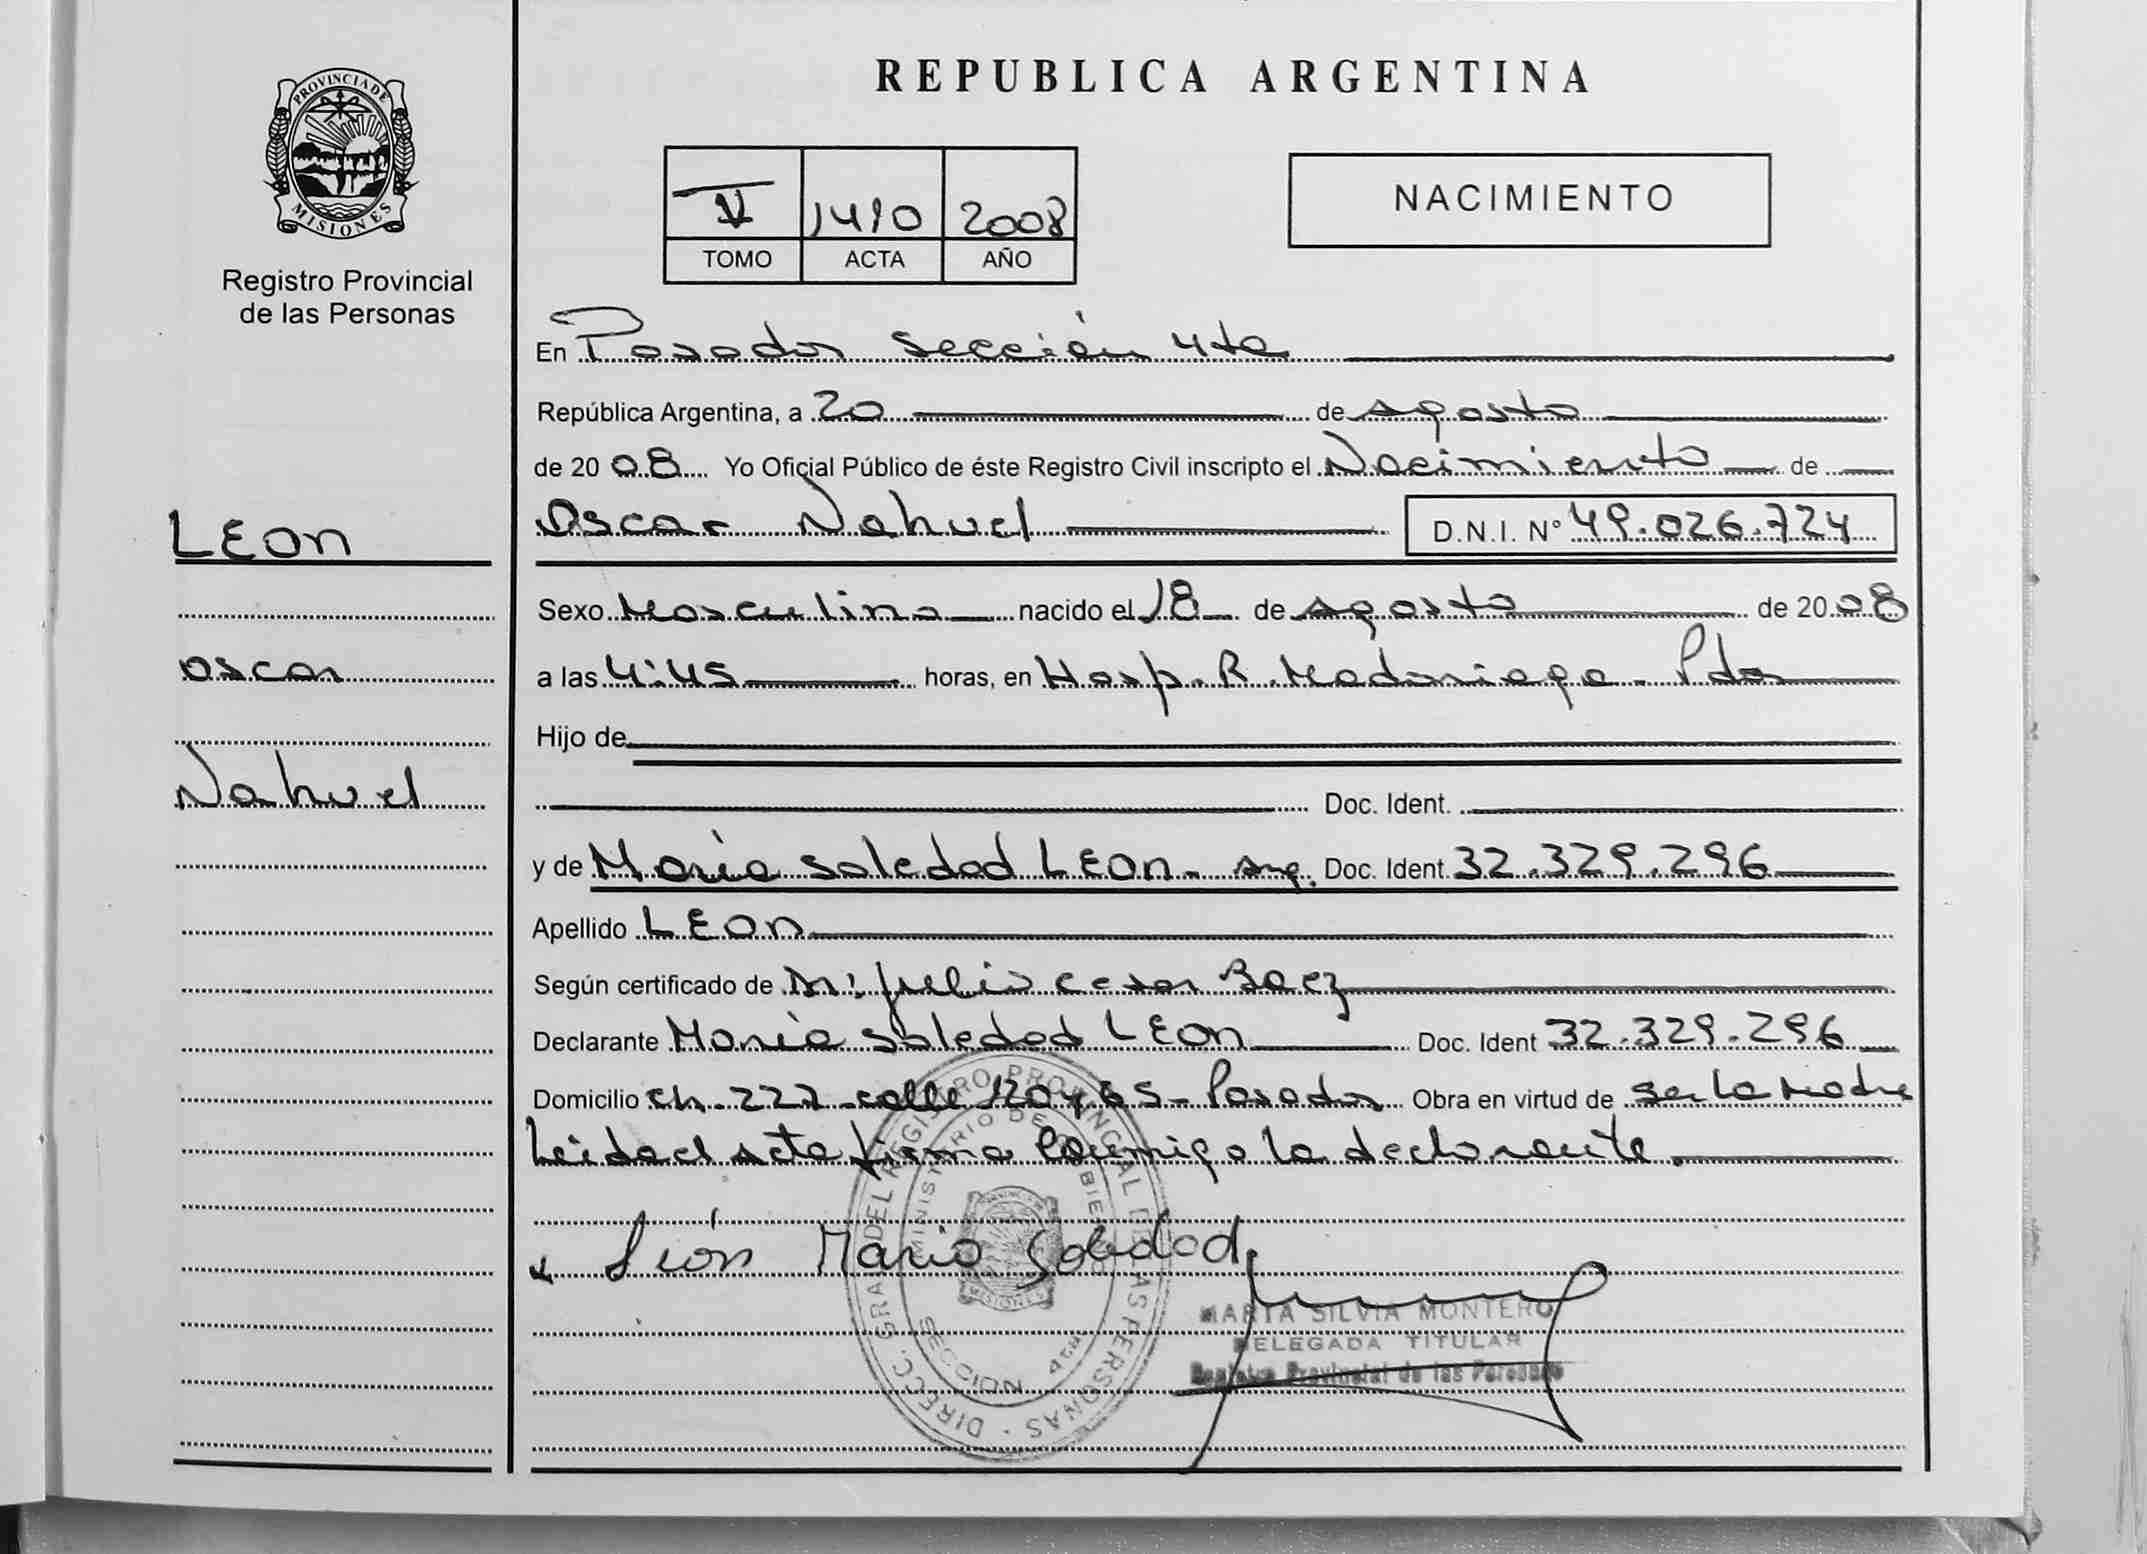 PROVINCIA DE
MISIONES
Registro Provincial
de las Personas
LEON
Oscar
Nahuel
REPUBLICA ARGENTINA
V 1410 2008
TOMO ACTA AÑO
NACIMIENTO
En Posadas Sección 4ta
República Argentina, a 20 de Agosto
de 2008 Yo Oficial Público de éste Registro Civil inscripto el Nacimiento de
Oscar Nahuel D.N.I. N° 49.026.724
Sexo Masculino nacido el 18 de Agosto de 2008
a las 4:45 horas, en Hosp. R. Madariaga - Pdas
Hijo de
Doc. Ident.
y de María Soledad LEON - Arg. Doc. Ident. 32.329.296
Apellido LEON
Según certificado de Julio Cesar Baez
Declarante María Soledad LEON Doc. Ident 32.329.296
Domicilio Ch. 227 calle - Posadas Obra en virtud de ser la Madre
Leida el Acta firma conmigo la declarante.
León Maria Soledad
MARTA SILVIA MONTERO
DELEGADA TITULAR
Registro Provincial de las Personas
DIRECC. GRAL DEL REGISTRO PROVINCIAL DE LAS PERSONAS
MINISTERIO DE GOBIERNO
MISIONES
SECCION 4ta